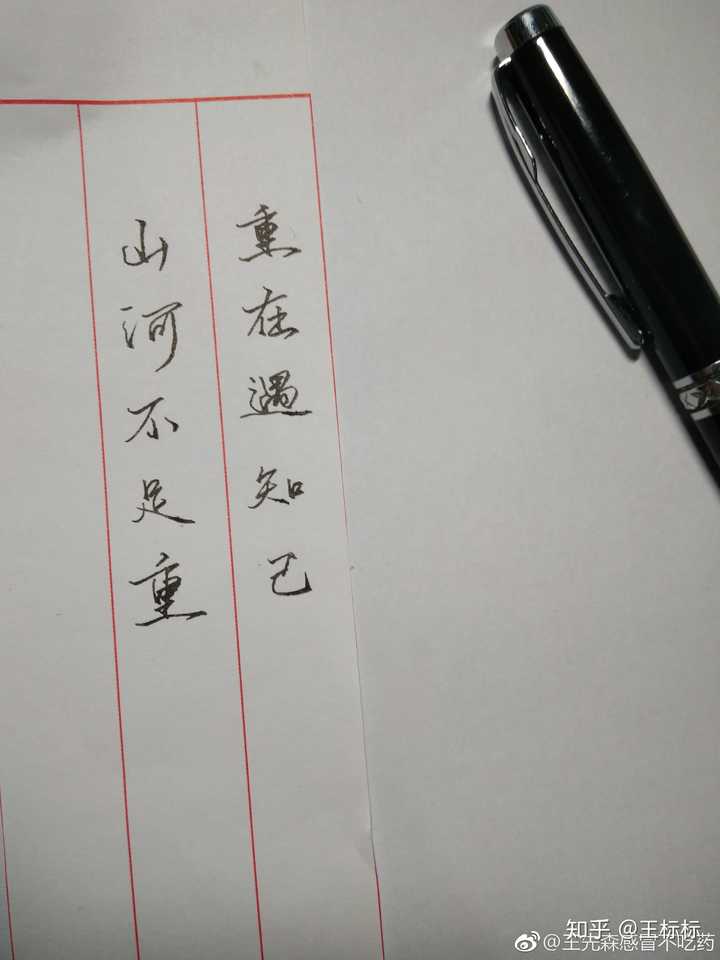 重在遇知己
山河不足重
知乎 @王标标
@王先森感冒不吃药